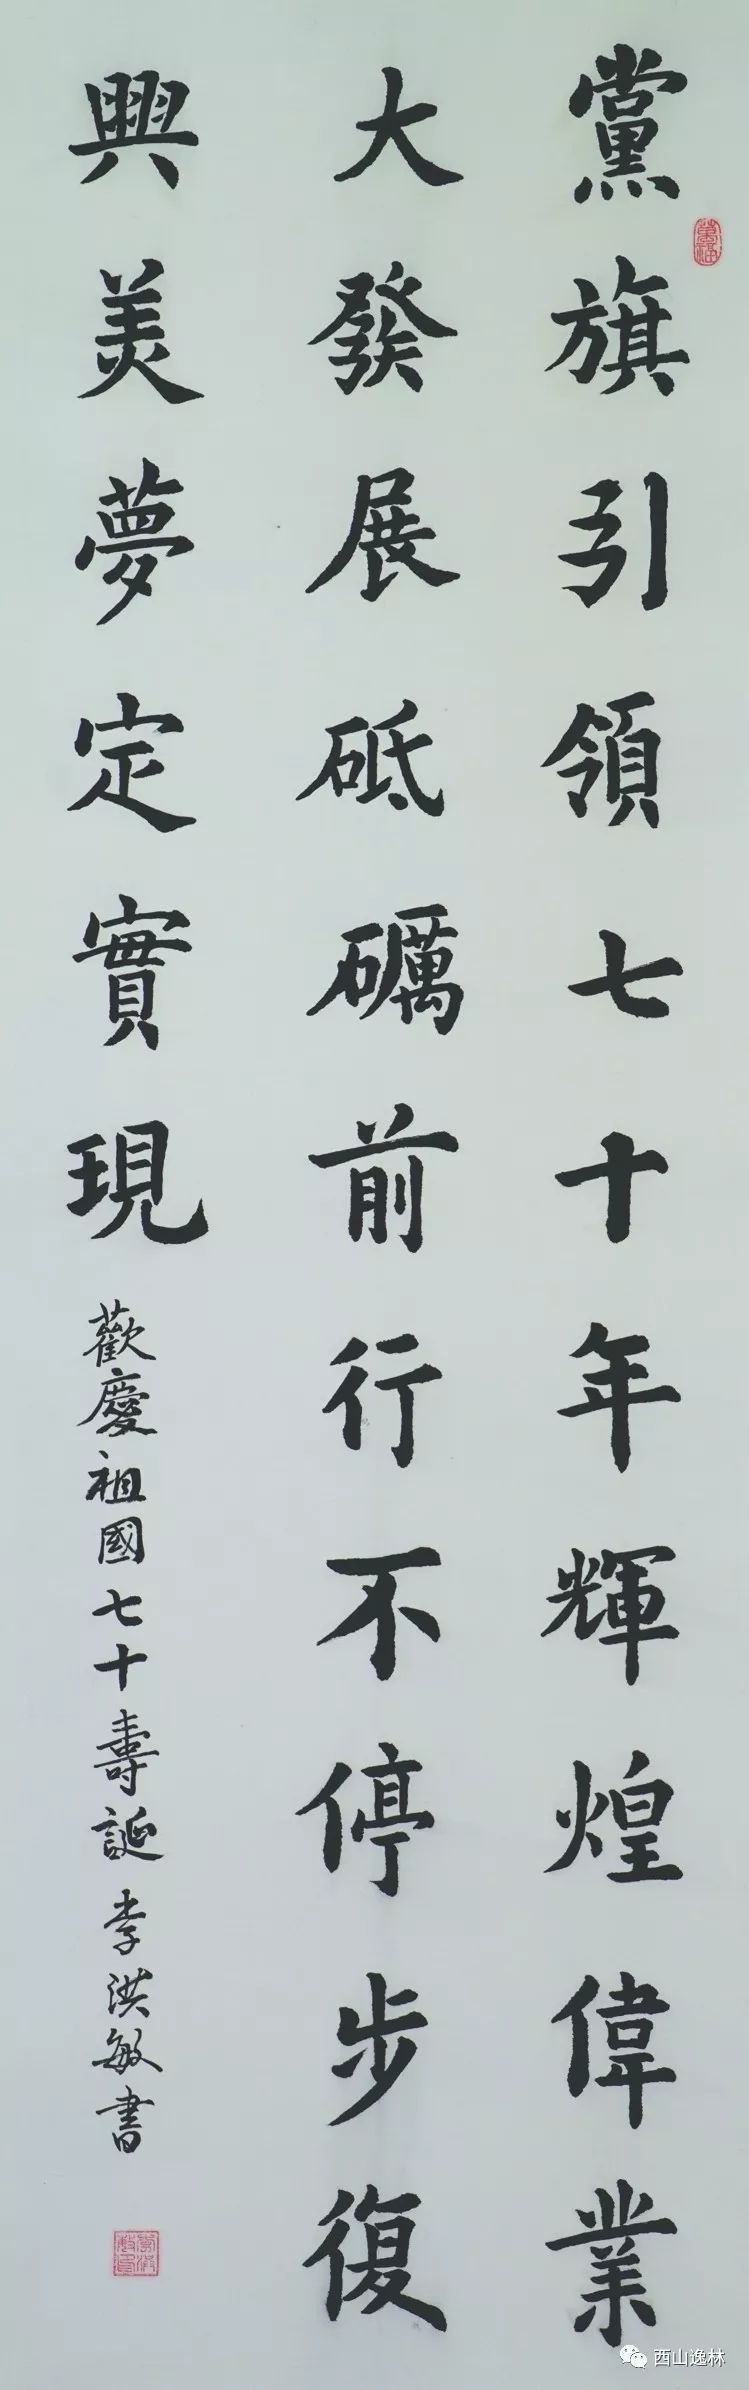 黨旗引領七十年輝煌偉業
大發展砥礪前行不停步復
興美夢定實現
歡慶祖國七十壽誕 李洪敏書
西山逸林